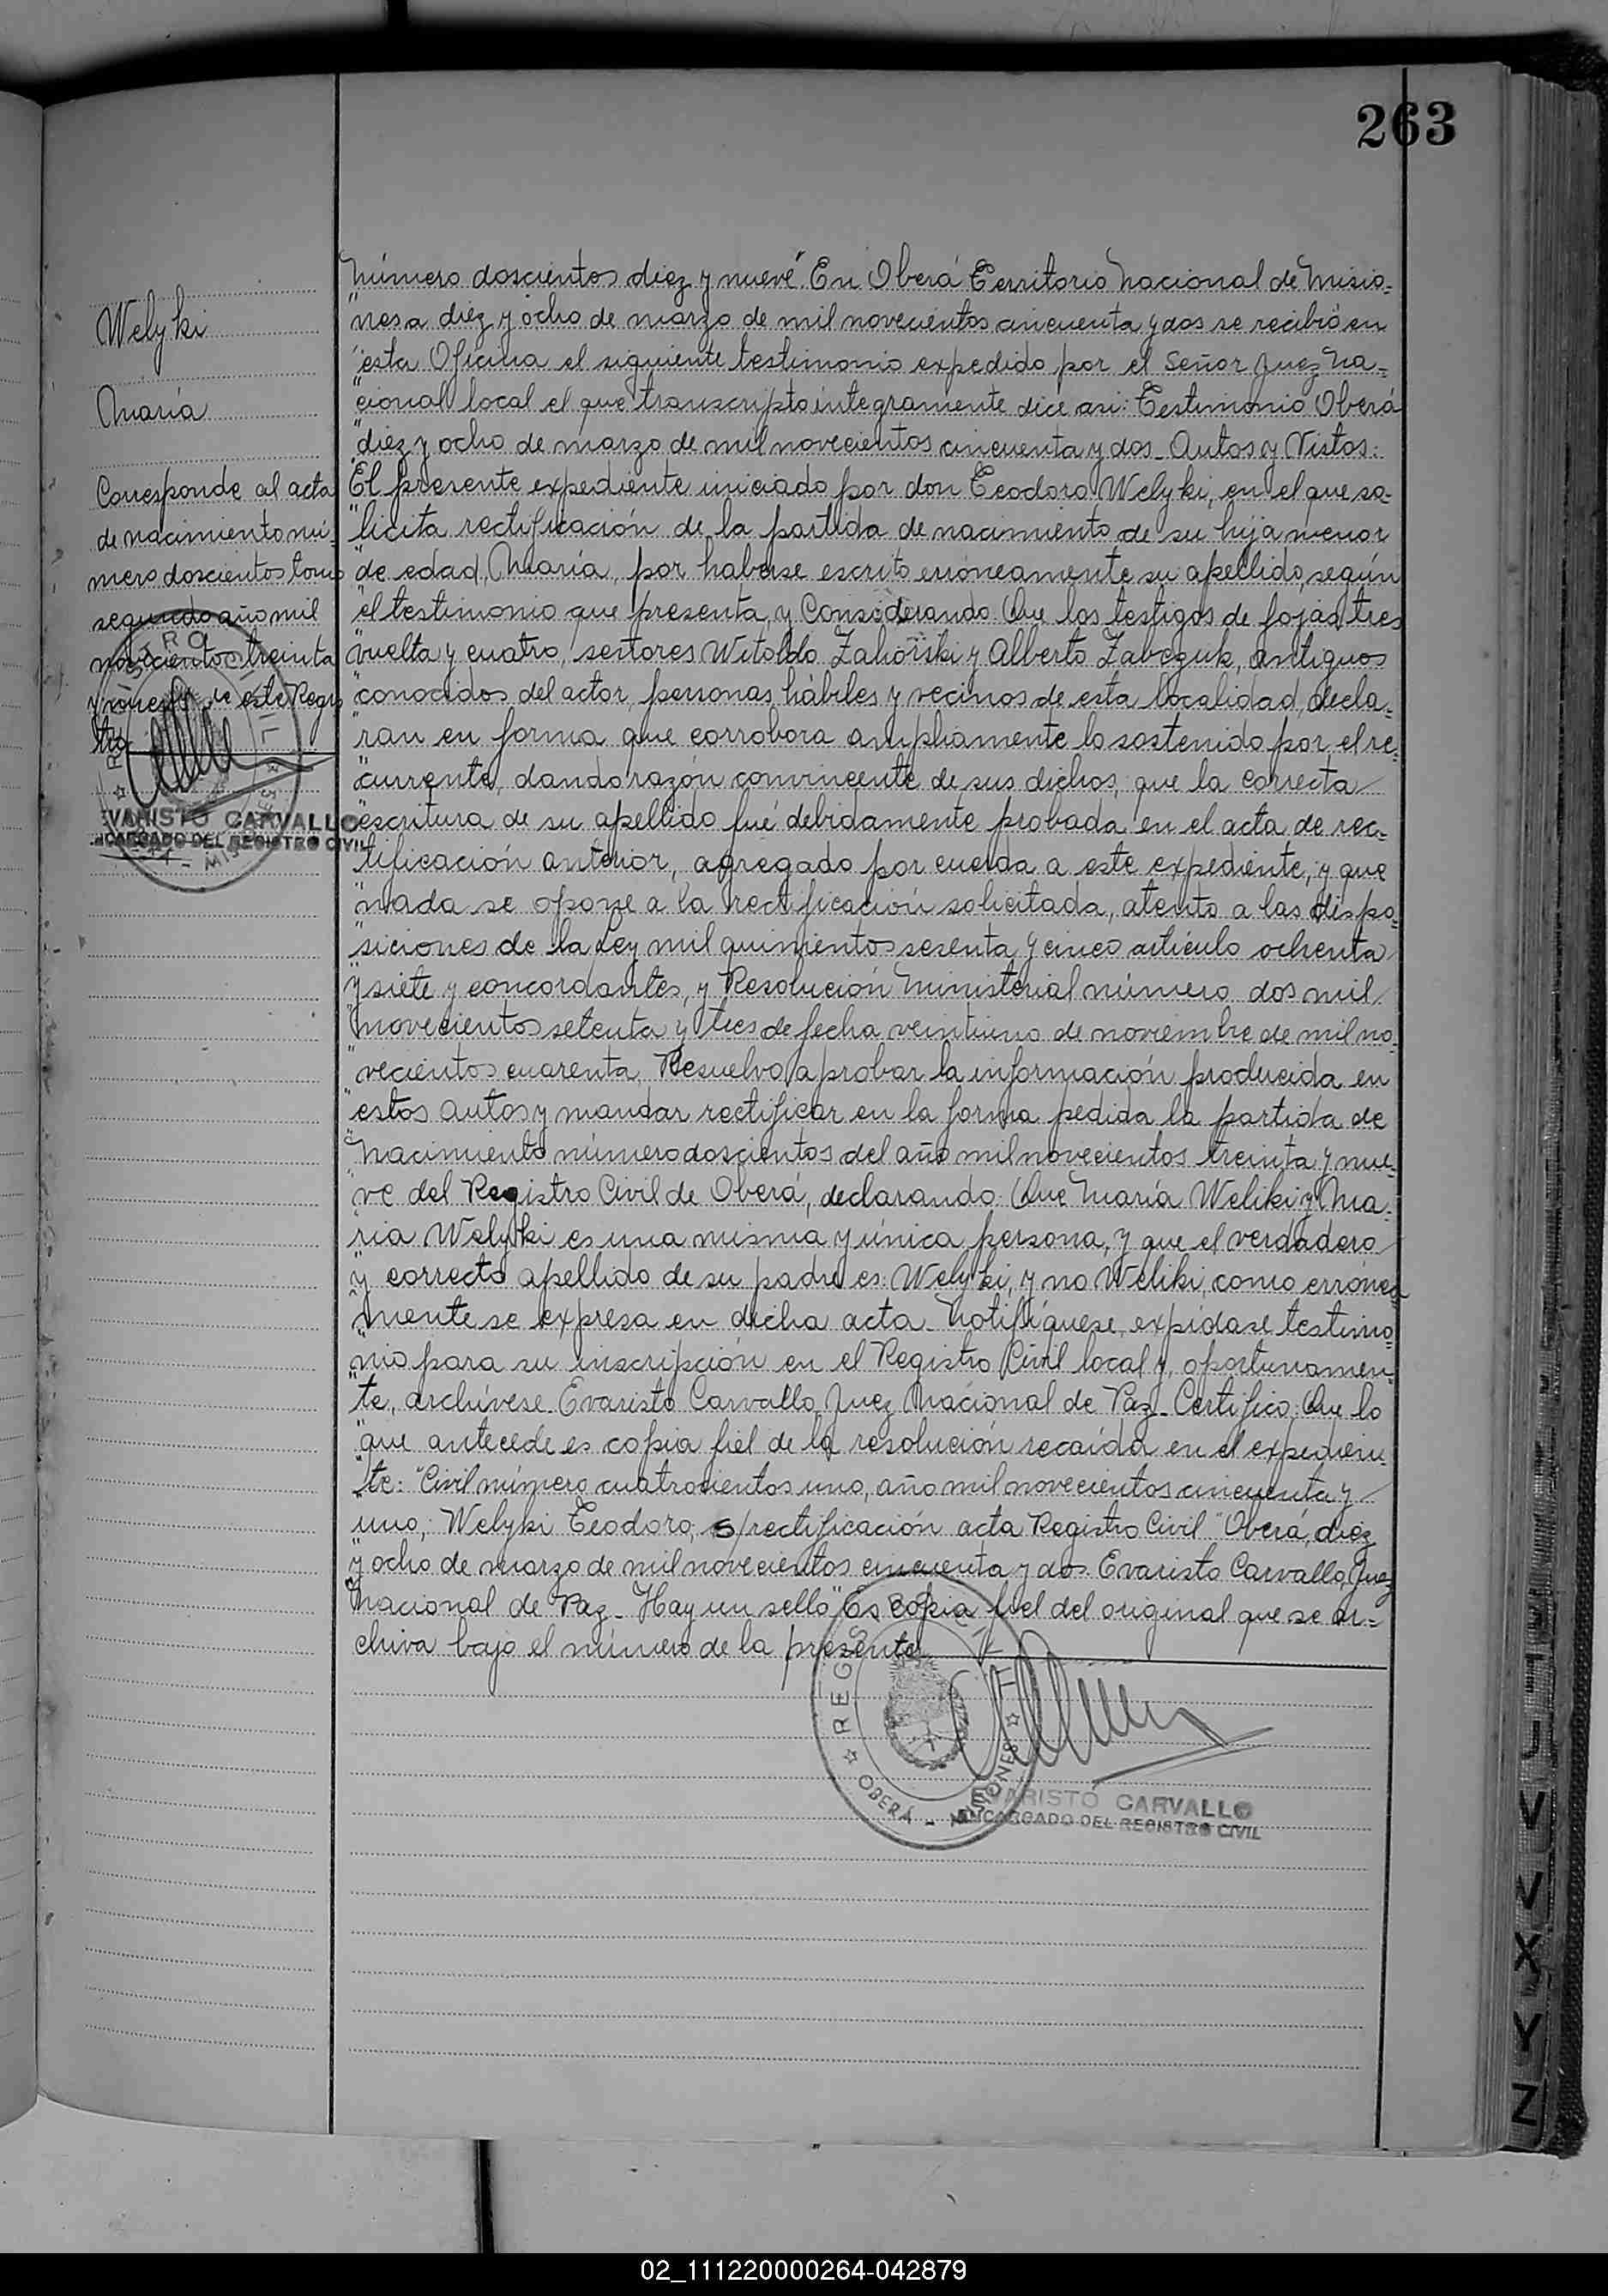 263
Welyki
María
Corresponde al acta
de nacimiento nú-
mero doscientos tomo
segundo año mil
novecientos treinta
y nueve de este Regis
tro
REGISTRO CIVIL
EVARISTO CARVALLO
ENCARGADO DEL REGISTRO CIVIL
Número doscientos diez y nueve" En Oberá Territorio Nacional de Misio-
"nes a diez y ocho de marzo de mil novecientos cincuenta y dos se recibió en
"esta Oficina el siguiente testimonio expedido por el Señor Juez Na-
"cional local el que transcripto íntegramente dice así: Testimonio Oberá
"diez y ocho de marzo de mil novecientos cincuenta y dos_ Autos y Vistos:
"El presente expediente iniciado por don Teodoro Welyki, en el que so-
"licita rectificación de la partida de nacimiento de su hija menor
"de edad, María, por haberse escrito erróneamente su apellido, según
"el testimonio que presenta, y Considerando: Que los testigos de fojas tres
"vuelta y cuatro, señores Witoldo Zahorski y Alberto Zabczuk, antiguos
"conocidos del actor, personas hábiles y vecinos de esta localidad, decla-
"ran en forma que corrobora ampliamente lo sostenido por el re-
"currente, dando razón convincente de sus dichos; que la correcta
"escritura de su apellido fué debidamente probada en el acta de rec-
"tificación anterior, agregado por cuerda a este expediente, y que
"nada se opone a la rectificación solicitada, atento a las dispo-
"siciones de la Ley mil quinientos sesenta y cinco artículo ochenta
"y siete y concordantes, y Resolución Ministerial número dos mil
"novecientos setenta y tres de fecha veintiuno de noviembre de mil no-
"vecientos cuarenta, Resuelvo aprobar la información producida en
"estos autos y mandar rectificar en la forma pedida la partida de
"nacimiento número doscientos del año mil novecientos treinta y nue-
"ve del Registro Civil de Oberá, declarando: Que María Weliki y Ma-
"ría Welyki es una misma y única persona, y que el verdadero
"y correcto apellido de su padre es: Welyki, y no Weliki, como errónea
"mente se expresa en dicha acta_ Notifíquese, expídase testimo-
"nio para su inscripción en el Registro Civil local y, oportunamen-
"te, archívese_ Evaristo Carvallo, Juez Nacional de Paz_ Certifico: Que lo
"que antecede es copia fiel de la resolución recaída en el expedien-
"te: "Civil número cuatrocientos uno, año mil novecientos cincuenta y
"uno, Welyki Teodoro, s/rectificación acta Registro Civil" Oberá, diez
"y ocho de marzo de mil novecientos cincuenta y dos_ Evaristo Carvallo, Juez
"Nacional de Paz_ Hay un sello" Es copia fiel del original que se ar-
chiva bajo el número de la presente
REGISTRO CIVIL
OBERÁ - MISIONES
EVARISTO CARVALLO
ENCARGADO DEL REGISTRO CIVIL
U
V
X
Y
Z
02_111220000264-042879